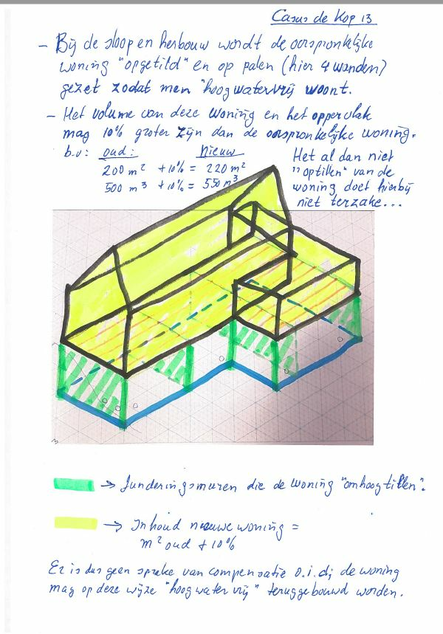 Casus de Kop 13
- Bij de sloop en herbouw wordt de oorspronkelijke
woning "opgetild" en op palen (hier 4 wanden)
gezet zodat men "hoogwatervrij woont.
- Het volume van deze woning en het oppervlak
mag 10% groter zijn dan de oorspronkelijke woning.
b.v: oud: Nieuw
200 m² + 10% = 220 m²
500 m³ + 10% = 550 m³
Het al dan niet
"optillen" van de
woning doet hierbij
niet terzake...
→ funderingsmuren die de woning "omhoog tillen".
→ Inhoud nieuwe woning =
m² oud + 10%
Er is dus geen sprake van compensatie o.i.d; de woning
mag op deze wijze "hoogwatervrij" teruggebouwd worden.